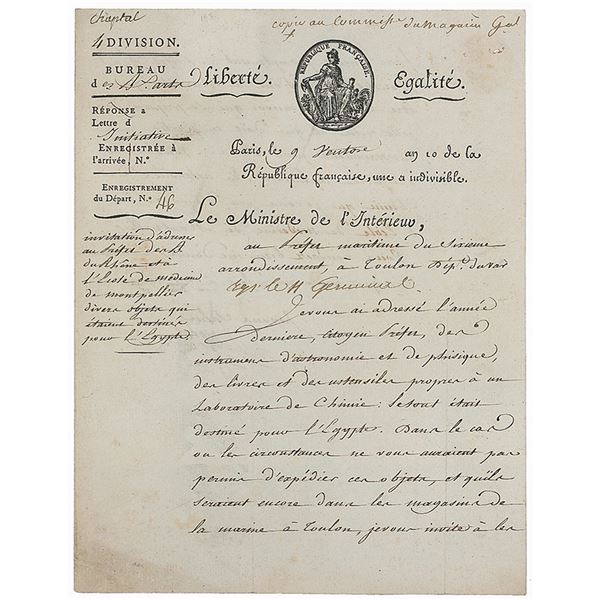 Chaptal
copie au Commiss.re du Magasin G.al
4 DIVISION.
BUREAU
des Arts
Liberté.
RÉPUBLIQUE FRANÇAISE.
Egalité.
RÉPONSE a
Lettre d
Initiative
ENREGISTRÉE à
l'arrivée, N.º
Paris, le 9 Ventose an 10 de la
République française, une et indivisible.
ENREGISTREMENT
du Départ, N.º 46
Le Ministre de l'Intérieur,
au Préfet maritime du Sixieme
arrondissement, à Toulon Dép.t du var
le 11 Germinal.
invitation d'adresser
au Préfet des B.
du Rhône et à
l'Ecole de médecine
de montpellier
divers objets qui
étaient destinés
pour l'Egypte.
Je vous ai adressé l'année
Derniere, citoyen Préfet, des
instrumens d'astronomie et de phisique,
des livres et des ustensiles propres à un
Laboratoire de Chimie: le tout était
destiné pour l'Egypte. Dans le cas
ou les circonstances ne vous auraient pas
permis d'expédier ces objets, et qu'ils
seraient encore dans les magasins de
la marine à Toulon, je vous invite à les